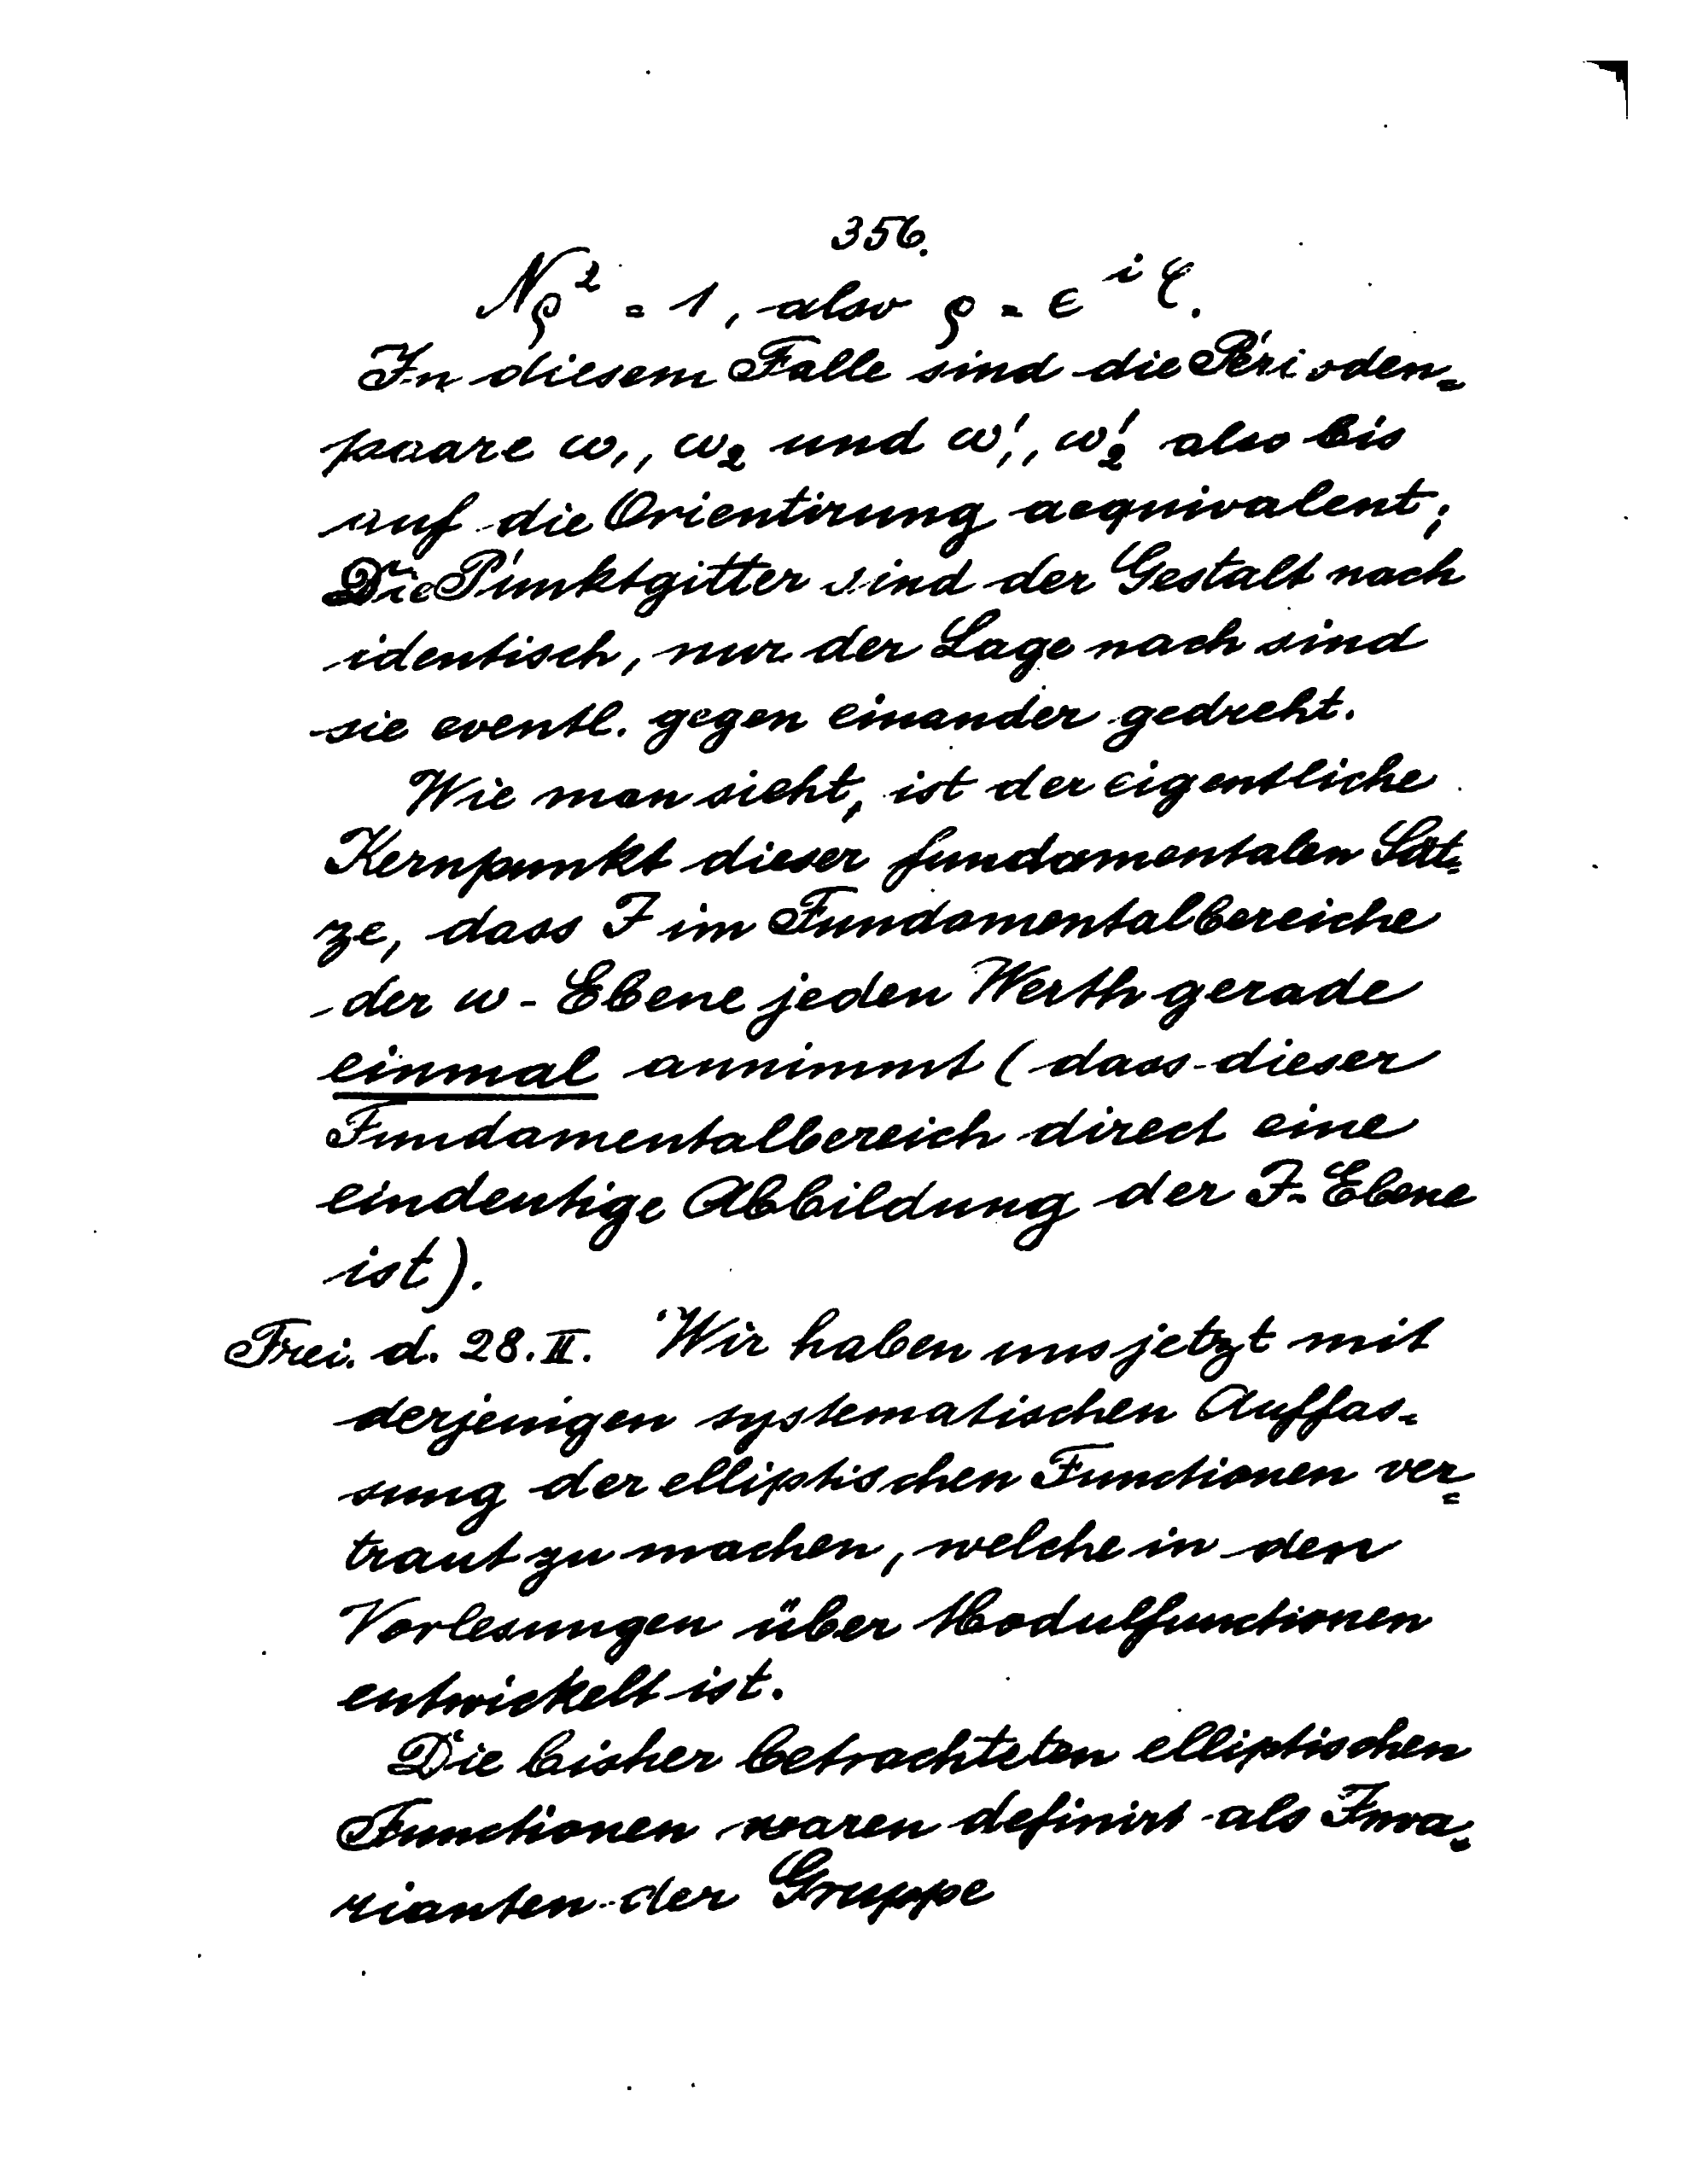 356.
Nρ² = 1, also ρ = e^{iφ}.
In diesem Falle sind die Perioden=
paare ω₁, ω₂ und ω'₁, ω'₂ also bis
auf die Orientirung aequivalent;
Die Punktgitter sind der Gestalt nach
identisch, nur der Lage nach sind
sie eventl. gegen einander gedreht.
Wie man sieht, ist der eigentliche
Kernpunkt dieser fundamentalen Sät=
ze, dass J im Fundamentalbereiche
der ω-Ebene jeden Werth gerade
einmal annimmt (dass dieser
Fundamentalbereich direct eine
eindeutige Abbildung der J-Ebene
ist).
Frei. d. 28. II. Wir haben uns jetzt mit
derjenigen systematischen Auffas=
sung der elliptischen Functionen ver=
traut zu machen, welche in den
Vorlesungen über Modulfunctionen
entwickelt ist.
Die bisher betrachteten elliptischen
Functionen waren definirt als Inva=
rianten der Gruppe